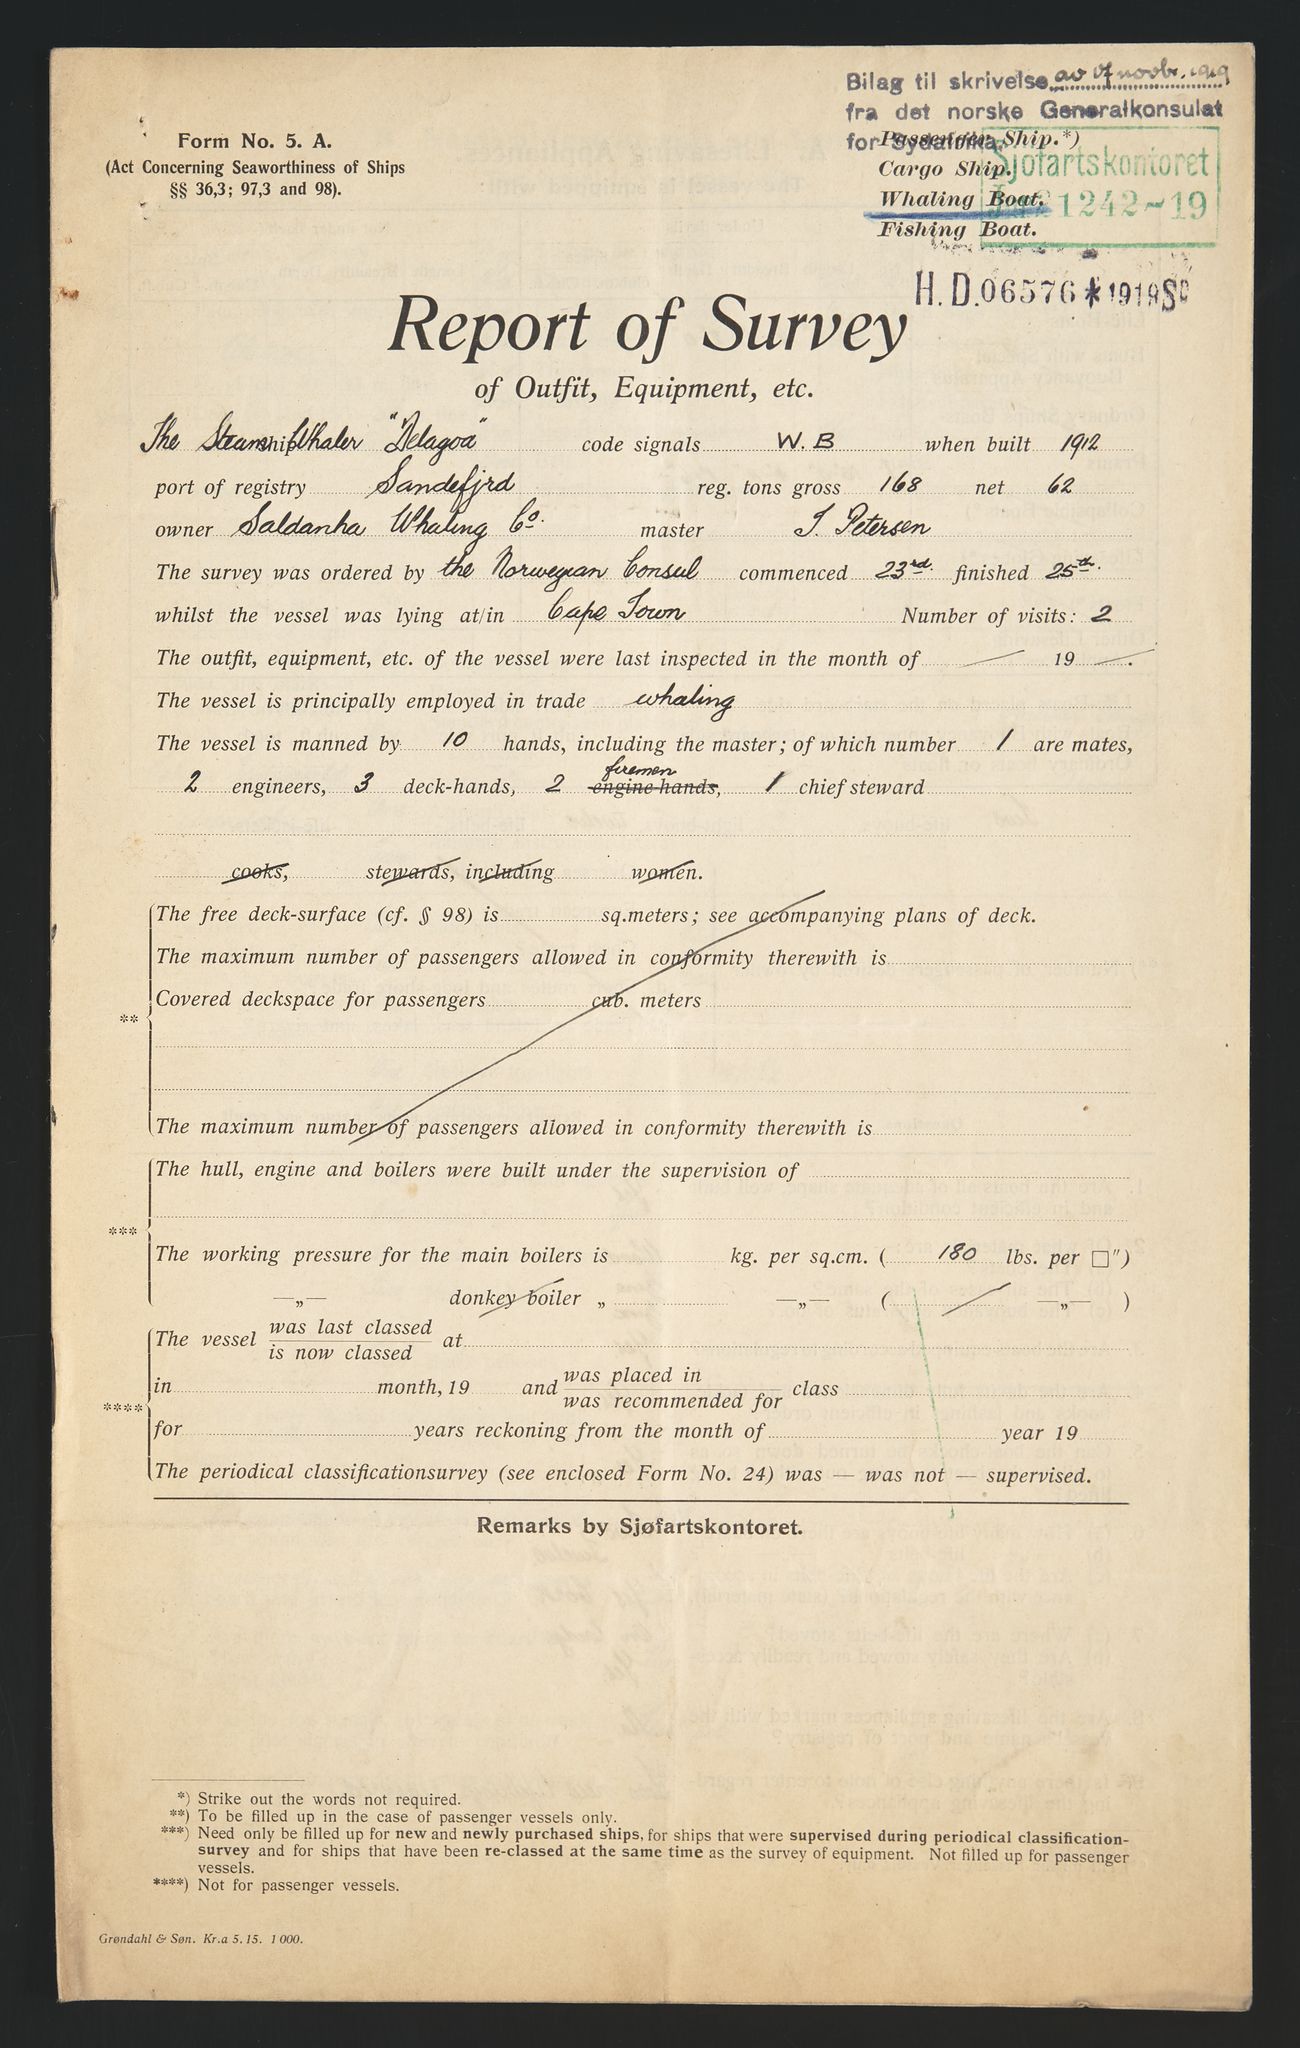 Bilag til skrivelse av novbr. 1919
fra det norske Generalkonsulat
for Sydafrika.
Form No. 5. A.
(Act Concerning Seaworthiness of Ships
§§ 36,3; 97,3 and 98).
Passenger Ship.*)
Cargo Ship.
Whaling Boat.
Fishing Boat.
Sjøfartskontoret
1242-19
H.D.06576*1919
Report of Survey
of Outfit, Equipment, etc.
The Steamship Whaler "Delagoa" code signals W.B when built 1912
port of registry Sandefjrd reg. tons gross 168 net 62
owner Saldanha Whaling Co. master J. Petersen
The survey was ordered by the Norwegian Consul commenced 23rd. finished 25th.
whilst the vessel was lying at/in Cape Town Number of visits: 2
The outfit, equipment, etc. of the vessel were last inspected in the month of — 19 —.
The vessel is principally employed in trade whaling
The vessel is manned by 10 hands, including the master; of which number 1 are mates,
firemen
2 engineers, 3 deck-hands, 2 engine-hands, 1 chief steward
cooks, stewards, including women.
The free deck-surface (cf. § 98) is sq.meters; see accompanying plans of deck.
The maximum number of passengers allowed in conformity therewith is
Covered deckspace for passengers cub. meters
**
The maximum number of passengers allowed in conformity therewith is
The hull, engine and boilers were built under the supervision of
***
The working pressure for the main boilers is kg. per sq.cm. ( 180 lbs. per □")
—„— donkey boiler „ —„— ( —„— )
The vessel was last classed
is now classed at
in month, 19 and was placed in
was recommended for class
****
for years reckoning from the month of year 19
The periodical classificationsurvey (see enclosed Form No. 24) was — was not — supervised.
Remarks by Sjøfartskontoret.
*) Strike out the words not required.
**) To be filled up in the case of passenger vessels only.
***) Need only be filled up for new and newly purchased ships, for ships that were supervised during periodical classification-
survey and for ships that have been re-classed at the same time as the survey of equipment. Not filled up for passenger
vessels.
****) Not for passenger vessels.
Grøndahl & Søn. Kr.a 5. 15. 1 000.